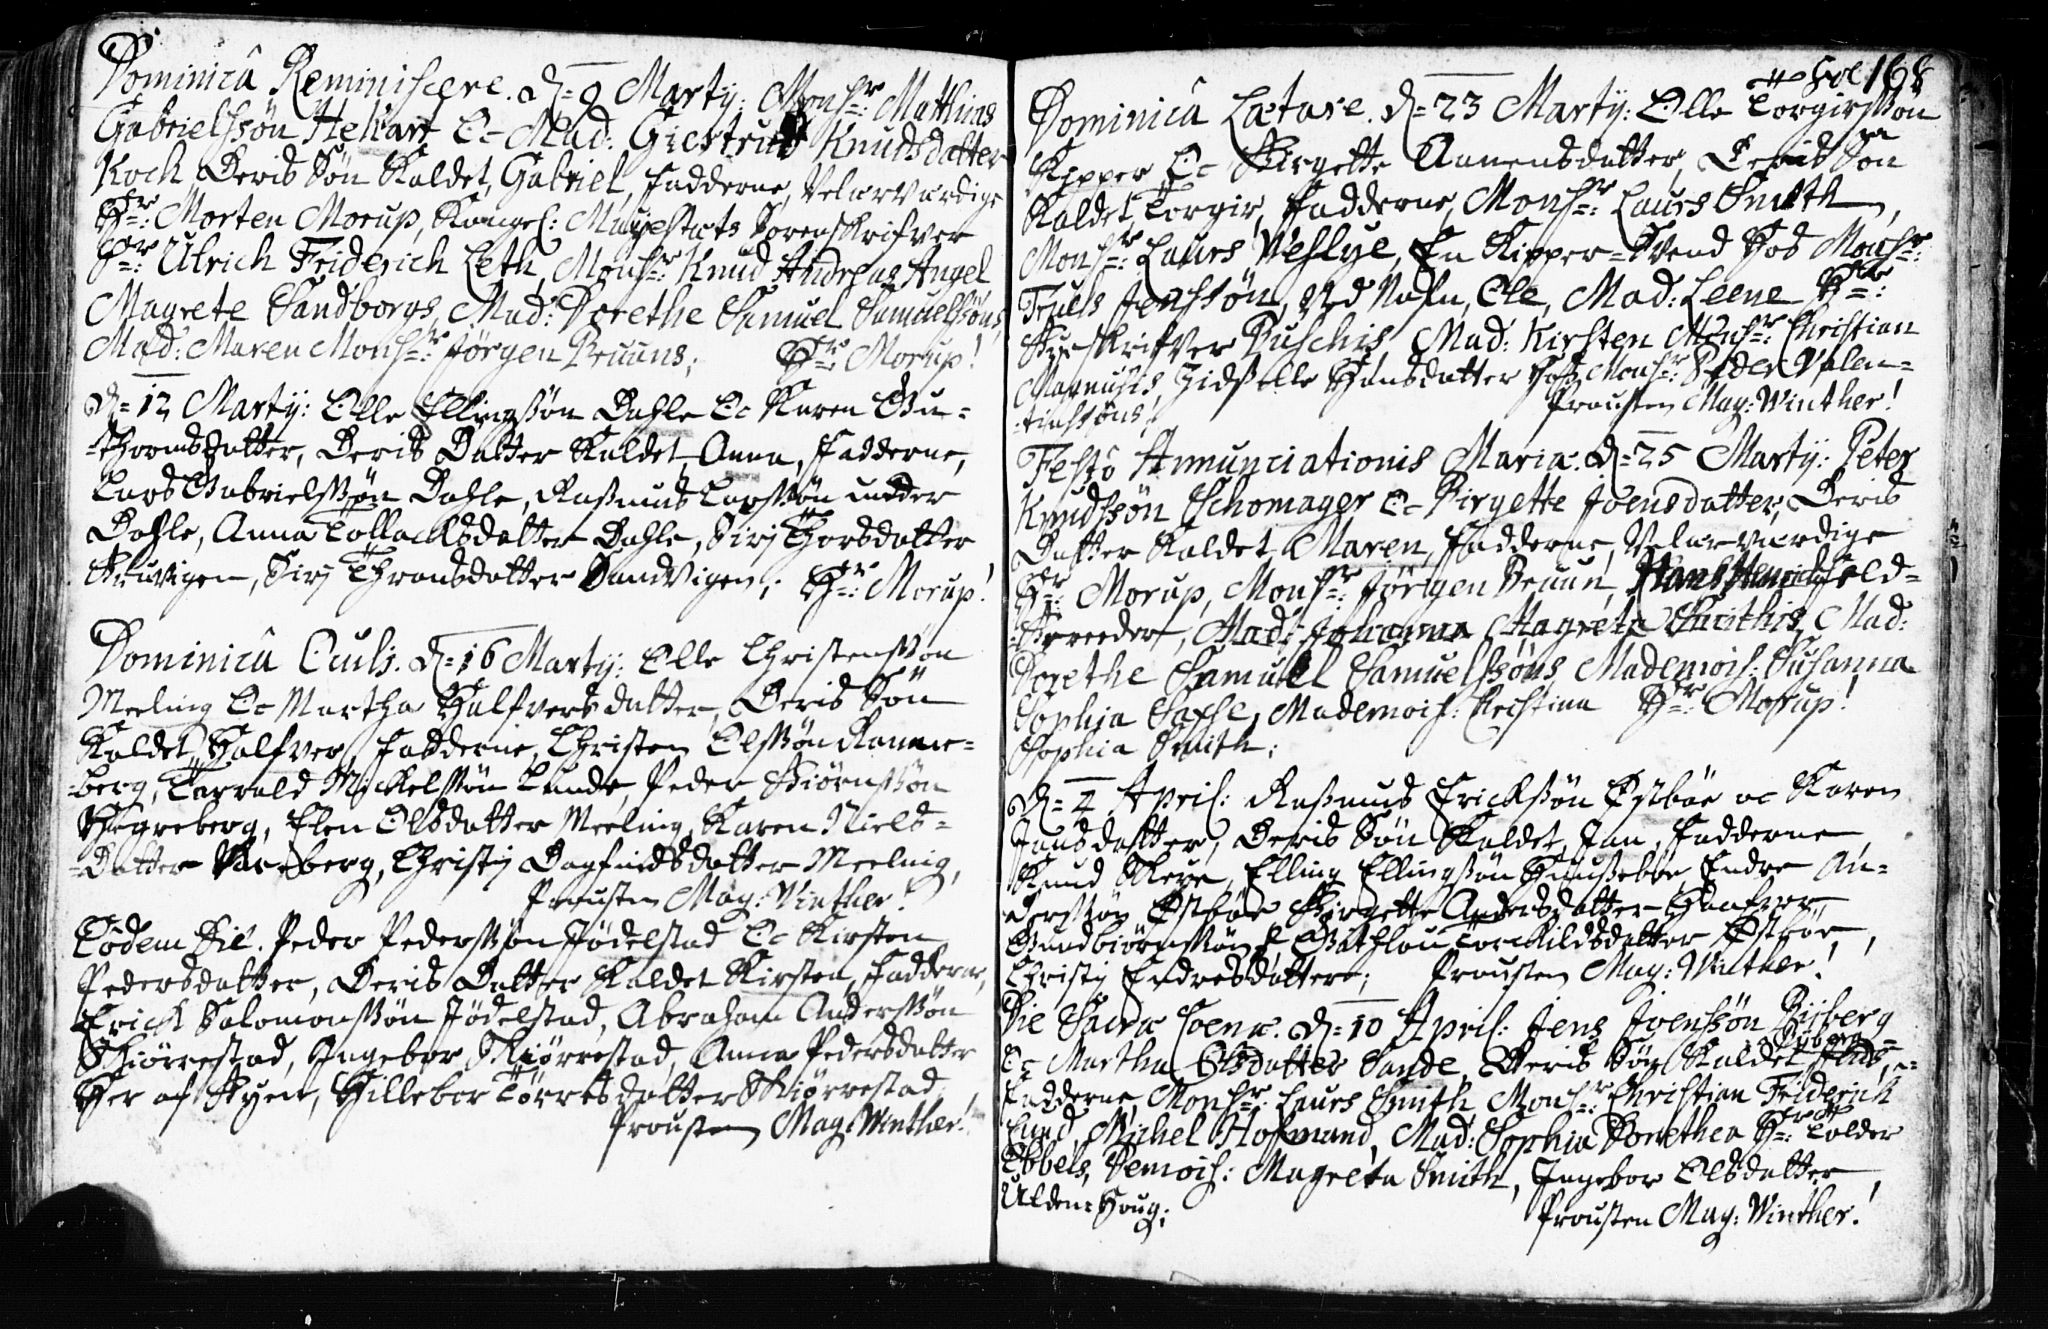 Dominicâ Reminiscere. D= 9 Marty: Monsr: Matthias
Gabrielssøn Heliart Oc Mad: Giertrud Knudsdatter
Koch, Deris Søn Kaldet, Gabriel, Fadderne, Velærværdige
Hr: Morten Morup, Kongel: Mayestæts Sorenskrifver
Sr: Ulrich Friderich Leth, Monsr: Knud Andreas Angel
Magrete Sandborgs, Mad: Dorethe Samuel Samuelssøns,
Mad: Maren Monsr: Jørgen Bruuns; Hr: Morup!
D= 12 Marty: Olle Ellingssøn Dahle Oc Karen Gu-
-thormsdatter, Deris Datter Kaldet, Anna, Fadderne,
Lars Gabrielssøn Dahle, Rasmus Larssøn
Dahle, Anna Tollachsdatter Dahle, Sirj Thorsdatter
Sirj Thronsdatter Sandvigen; Hr: Morup!
Dominicâ Oculi. D= 16 Marty: Olle Christenssøn
Meeling Oc Martha Halfversdatter, Deris Søn
Kaldet, Halfver, Fadderne, Christen Olssøn Ramne-
-berg, Torvald Mickelssøn Lunde, Peder Biørnssøn
Hegreberg, Elen Olsdatter Meeling, Karen Niels-
-Datter Vareberg, Christj Dagfindsdatter Meeling,
Prousten Mag: Winther!
Eodem Die. Peder Pederssøn Jødelstad Oc Kirsten
Pedersdatter, Deris Datter Kaldet Kirsten, Fadderne,
Erick Salomonssøn Jødelstad, Abraham Anderssøn
Skiørrestad, Ingebor Skiørrestad, Anna Pedersdatter
Her af Byen, Hillebor Torresdatter Skiørrestad,
Prousten Mag: Winther!
Fol 168
Dominicâ Lætare. D= 23 Marty: Olle Torgirssøn
Kipper Oc Birgette Amensdatter, Deris Søn
Kaldet Torgir, Fadderne, Monsr: Laurs Smith,
Monsr: Laurs Veslye, En Kipper-Svend Hos Monsr:
Truels Jenssøn, Ved Nafn, Ole, Mad: Leene Hr:
Byeskrifver Buschis, Mad: Kirsten Monsr: Christian
Magnusis, Zidselle Hansdatter Hos Monsr: Peder Valen-
-tinssøns! Prousten Mag: Winther!
Festo Annunciationis Mariæ. D= 25 Marty: Peter
Knudssøn Schomager Oc Birgette Joensdatter, Deris
Datter Kaldet, Maren, Fadderne, Velærværdige
Hr: Morup, Monsr: Jørgen Bruun, Hans Henrich Feld-
-Bereeder, Mad: Johanna Magreta Smithis, Mad:
Dorethe Samuel Samuelssøns, Mademois: Susanna
Sophia Saxse, Mademois: Kechtina Hr: Morup!
Sophia Smith;
D= 2 April: Rasmus Erickssøn Østbøe oc Karen
Jansdatter, Deris Søn Kaldet, Jan, Fadderne
Knud Elling Ellingssøn Huusebøe Endre An-
-derssøn Østbøe Birgette Andersdatter
Gundbiørnssøn Torckildsdatter Østbøe,
Christj Endresdattere; Prousten Mag: Winther!
Die Sacræ Coenæ. D= 10 April: Jens Joenssøn Risberg
Oc Martha Olsdatter Sande, Deris Søn Kaldet
Fadderne, Monsr: Laurs Smith, Monsr: Christian Friderich
Lund, Michel Hofmand, Mad: Sophia Dorethea Hr: Tolder
Ebbels, Demois: Magreta Smith, Ingebor Olsdatter,
Ulden-Houg; Prousten Mag: Winther!